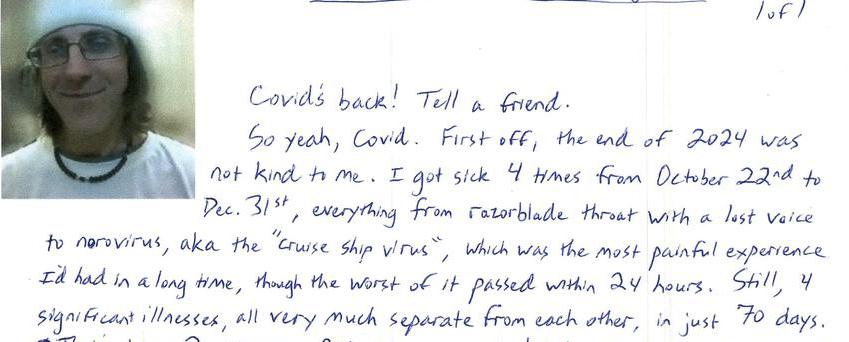 1 of 1
Covid's back! Tell a friend.
So yeah, Covid. First off, the end of 2024 was
not kind to me. I got sick 4 times from October 22nd to
Dec. 31st, everything from razorblade throat with a lost voice
to norovirus, aka the "cruise ship virus", which was the most painful experience
I'd had in a long time, though the worst of it passed within 24 hours. Still, 4
significant illnesses, all very much separate from each other, in just 70 days.